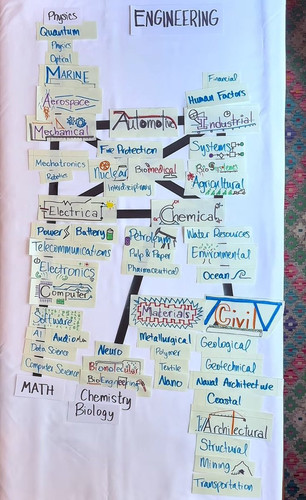 Physics
ENGINEERING
Quantum
Physics
Optical
MARINE
Aerospace
Mechanical
Automotive
Industrial
Financial
Human Factors
Fire Protection
Systems
Mechatronics
Robotics
Nuclear
Biomedical
Interdisciplinary
BioSystems
Agricultural
Electrical
Chemical
Power
Battery
Petroleum
Pulp & Paper
Pharmaceutical
Water Resources
Environmental
Ocean
Telecommunications
Electronics
Computer
Software
AI
Audio
Data Science
Computer Science
MATH
Neuro
Biomolecular
BioEngineering
Chemistry
Biology
Materials
Metallurgical
Polymer
Textile
Nano
Civil
Geological
Geotechnical
Naval Architecture
Coastal
Architectural
Structural
Mining
Transportation